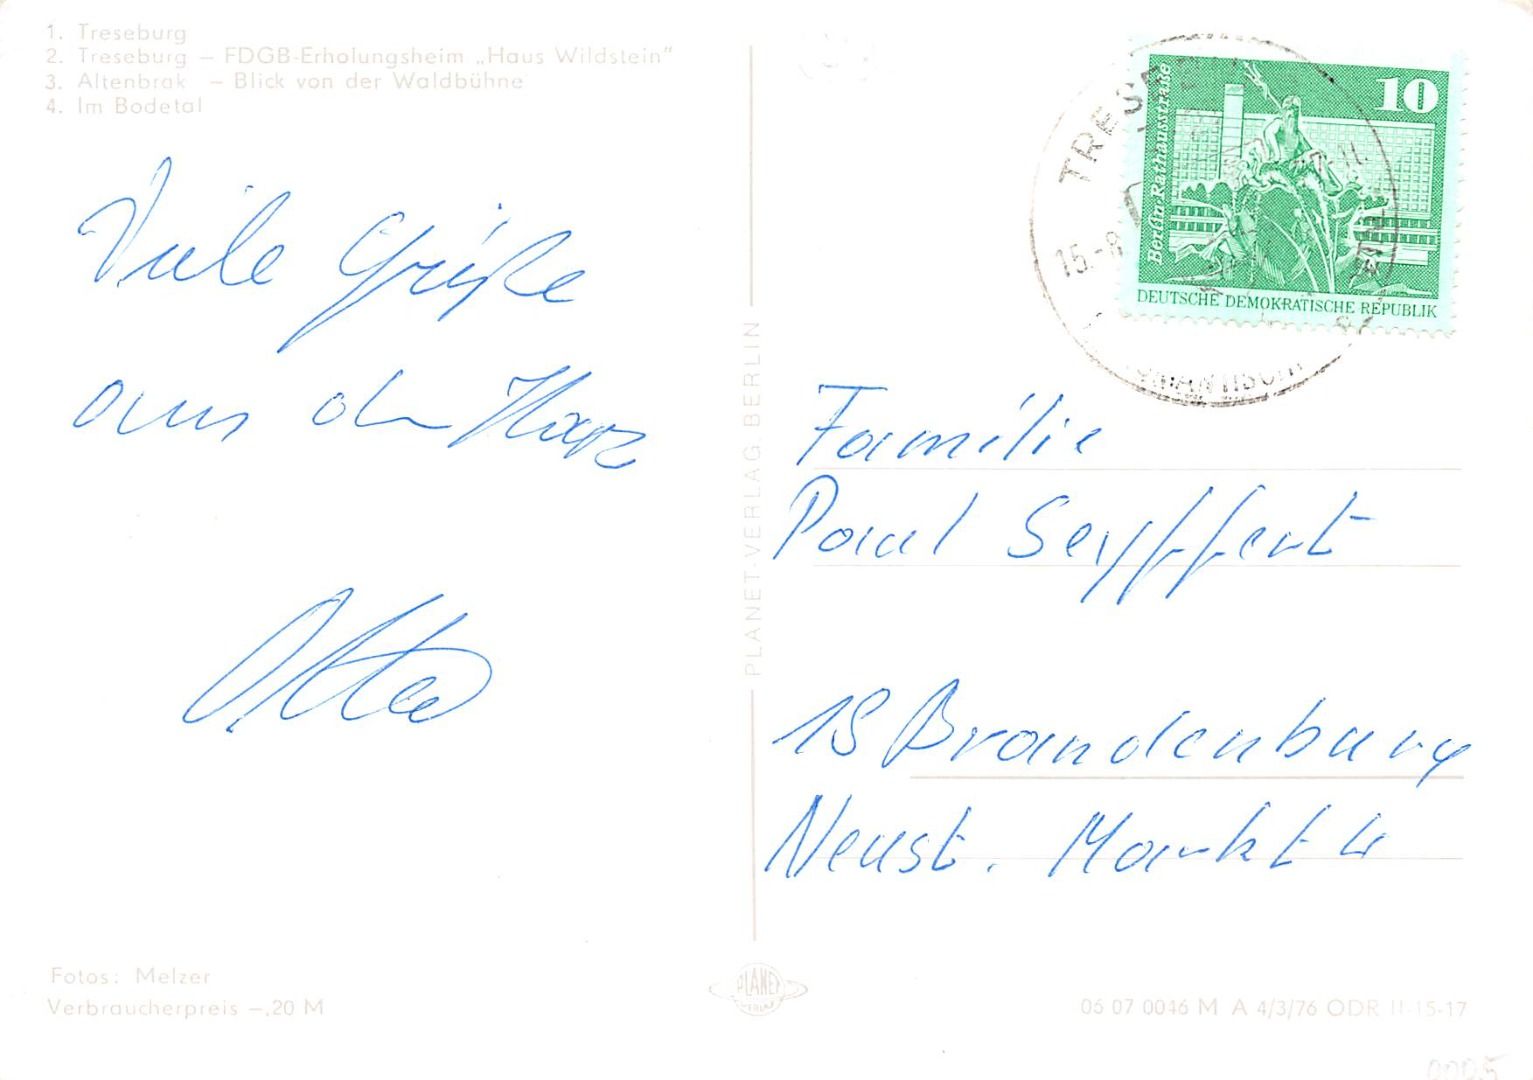 1. Treseburg
2. Treseburg – FDGB-Erholungsheim „Haus Wildstein"
3. Altenbrak – Blick von der Waldbühne
4. Im Bodetal
Viele Grüße
aus dem Harz
Otto
PLANET-VERLAG, BERLIN
10
Berlin-Rathausstraße
DEUTSCHE DEMOKRATISCHE REPUBLIK
15.-8
Familie
Paul Seyffert
18 Brandenburg
Neust. Markt 4
Fotos: Melzer
Verbraucherpreis –,20 M
PLANET
VERLAG
06 07 0046 M A 4/3/76 ODR II-15-17
0005